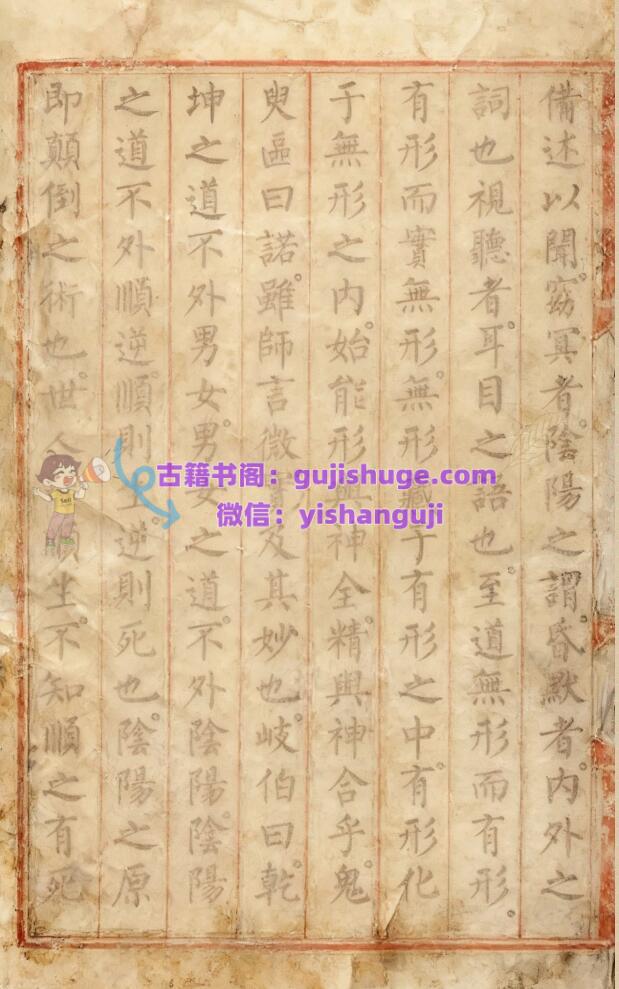 備述以聞。窈冥者。陰陽之謂。昏默者。內外之
詞也視聽者。耳目之語也。至道無形而有形。
有形而實無形。無形藏于有形之中。有形化
于無形之内。始能形與神全。精與神合乎。鬼
臾區曰諾。雖師言微及其妙也。岐伯曰。乾
坤之道不外男女。男女之道。不外陰陽。陰陽
之道不外順逆。順則生。逆則死也。陰陽之原
即顛倒之術也。世人順生。不知順之有死
古籍书阁：gujishuge.com
微信：yishanguji